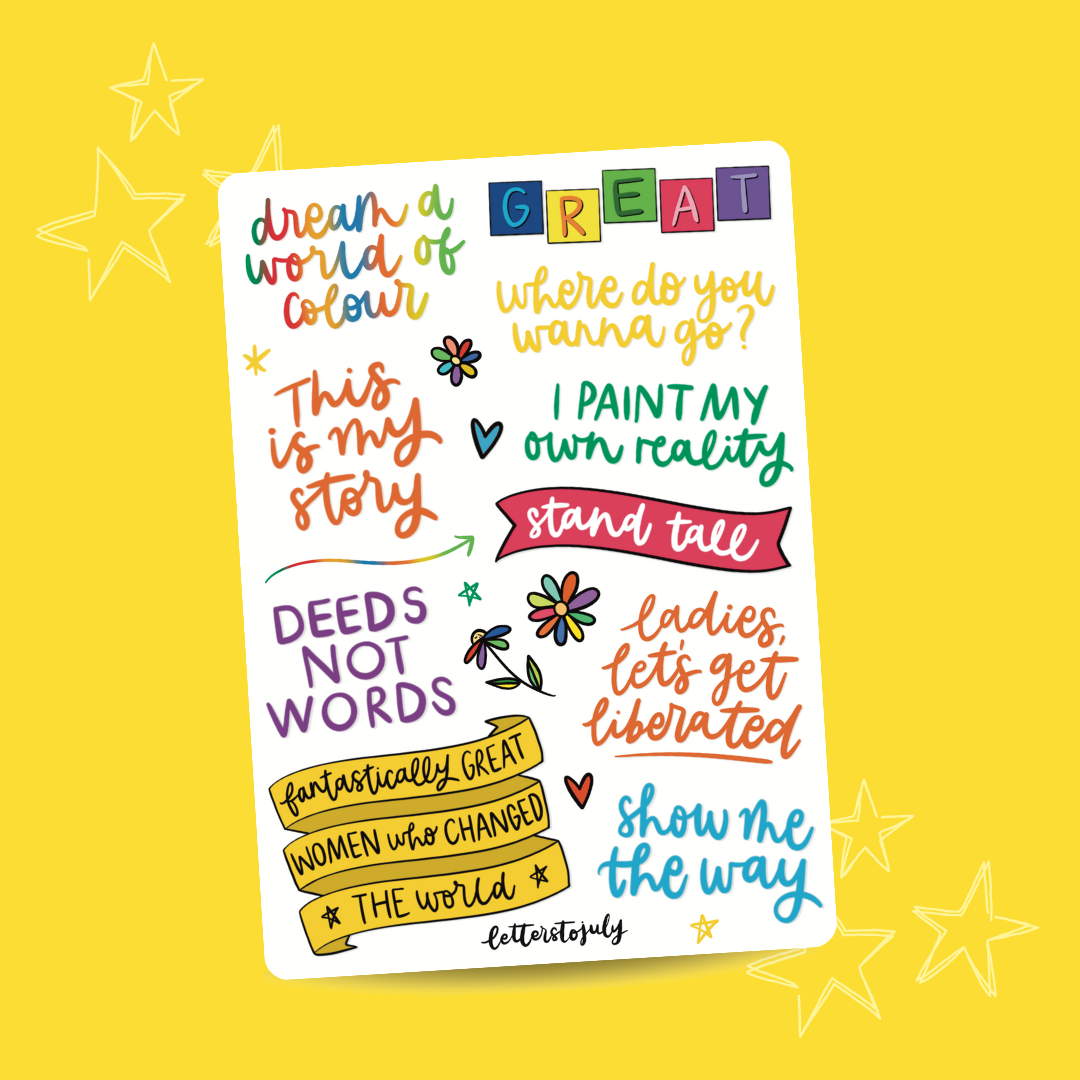 dream a
world of
colour
GREAT
where do you
wanna go?
This
is my
story
I PAINT MY
own reality
stand tall
DEEDS
NOT
WORDS
ladies,
let's get
liberated
fantastically GREAT
WOMEN who CHANGED
THE world
show me
the way
letterstojuly